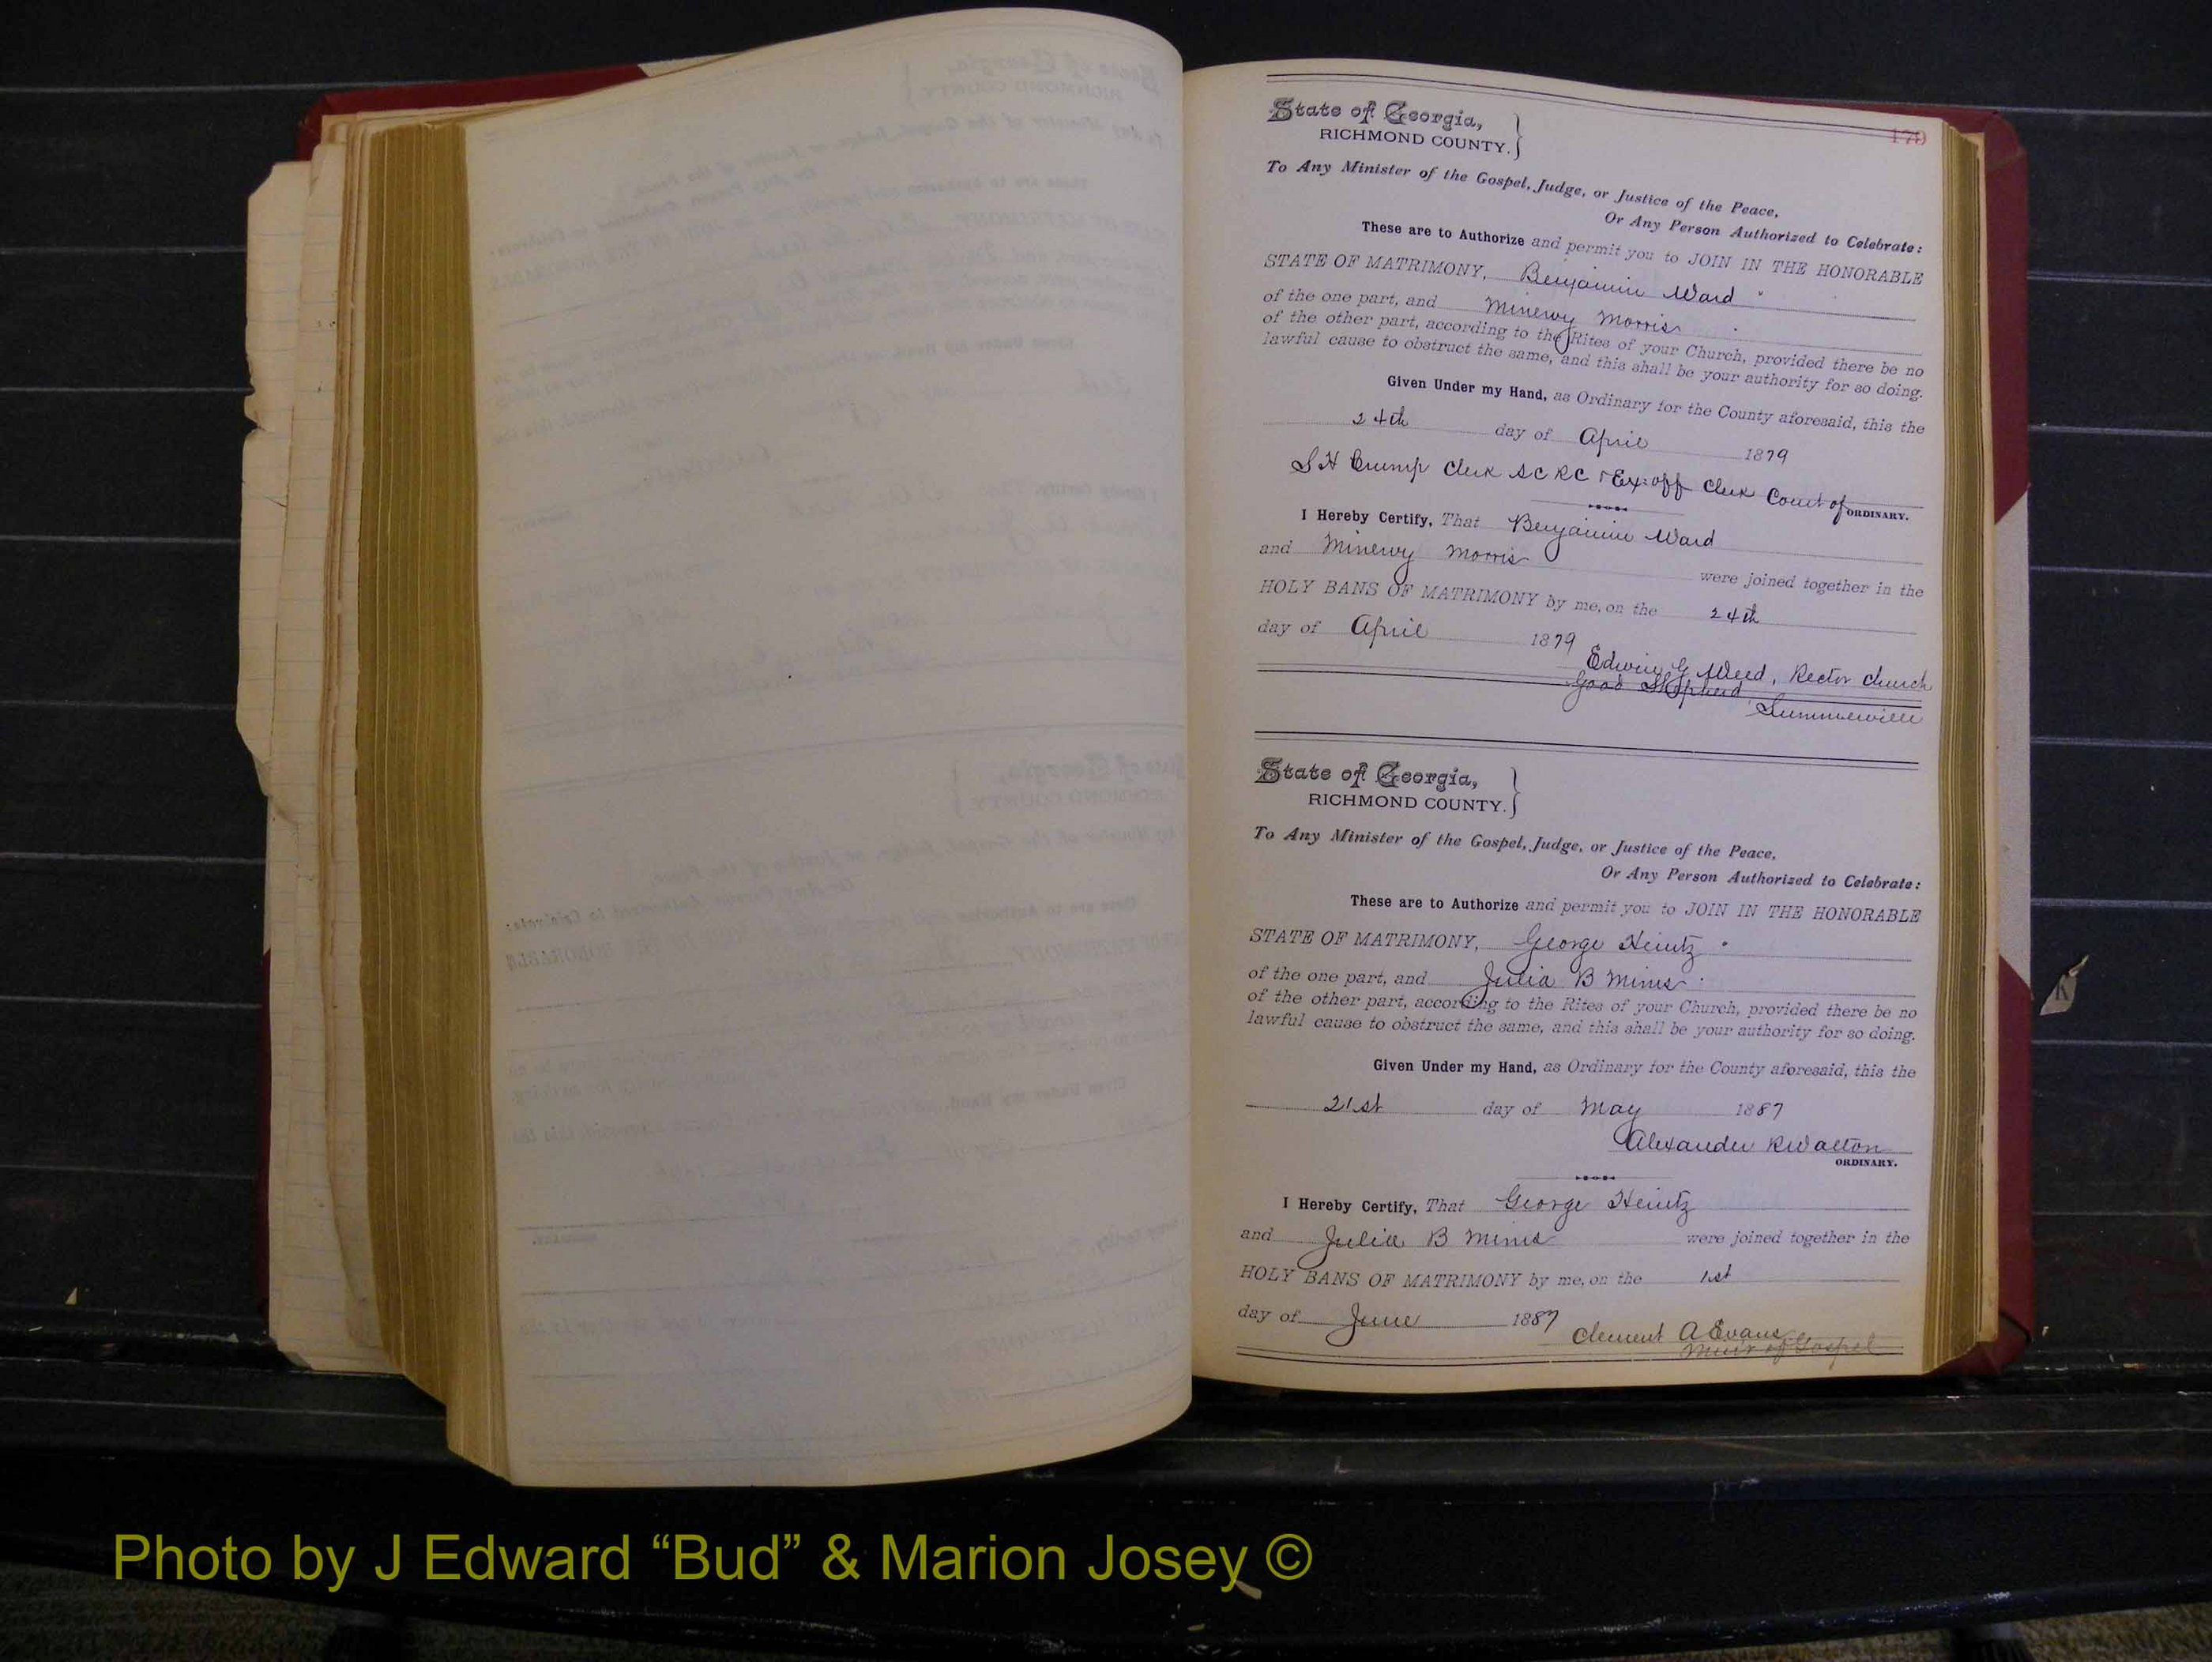 179
State of Georgia,
RICHMOND COUNTY.
To Any Minister of the Gospel, Judge, or Justice of the Peace,
Or Any Person Authorized to Celebrate:
These are to Authorize and permit you to JOIN IN THE HONORABLE
STATE OF MATRIMONY, Benjamin Ward
of the one part, and Minewy Morris
of the other part, according to the Rites of your Church, provided there be no
lawful cause to obstruct the same, and this shall be your authority for so doing.
Given Under my Hand, as Ordinary for the County aforesaid, this the
24th day of April 1879
S H Crump Clerk S C R C & Ex:off Clerk Court of ORDINARY.
I Hereby Certify, That Benjamin Ward
and Minewy Morris were joined together in the
HOLY BANS OF MATRIMONY by me, on the 24th
day of April 1879
Edwin G Weed, Rector Church
Good Shepherd
Summerville
State of Georgia,
RICHMOND COUNTY.
To Any Minister of the Gospel, Judge, or Justice of the Peace,
Or Any Person Authorized to Celebrate:
These are to Authorize and permit you to JOIN IN THE HONORABLE
STATE OF MATRIMONY, George Heintz
of the one part, and Julia B Mims
of the other part, according to the Rites of your Church, provided there be no
lawful cause to obstruct the same, and this shall be your authority for so doing.
Given Under my Hand, as Ordinary for the County aforesaid, this the
21st day of May 1887
Alexander R Walton
ORDINARY.
I Hereby Certify, That George Heintz
and Julia B Mims were joined together in the
HOLY BANS OF MATRIMONY by me, on the 1st
day of June 1887
Clement A Evans
Minr of Gospel
K
Photo by J Edward “Bud” & Marion Josey ©